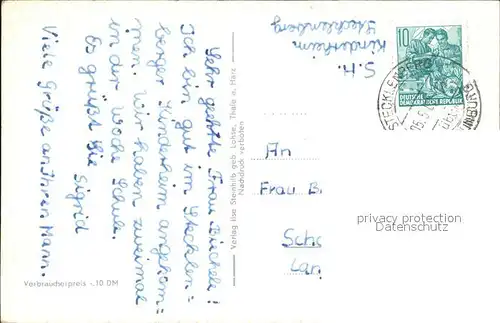 Sehr geehrte Frau Büchele!
Ich bin gut im Stecklen=
berger Kinderheim angekom=
men. Wir haben zweimal
in der Woche Schule.
Es grüßt Sie Sigrid
Viele Grüße an Ihren Mann.
Verbraucherpreis -.10 DM
Verlag Ilse Steinhilb geb. Lohse, Thale a. Harz
Nachdruck verboten
S. H.
Kinderheim
Stecklenberg
10
DEUTSCHE
DEMOKRATISCHE REPUBLIK
An
Frau B
Sch
Lan
privacy protection
Datenschutz